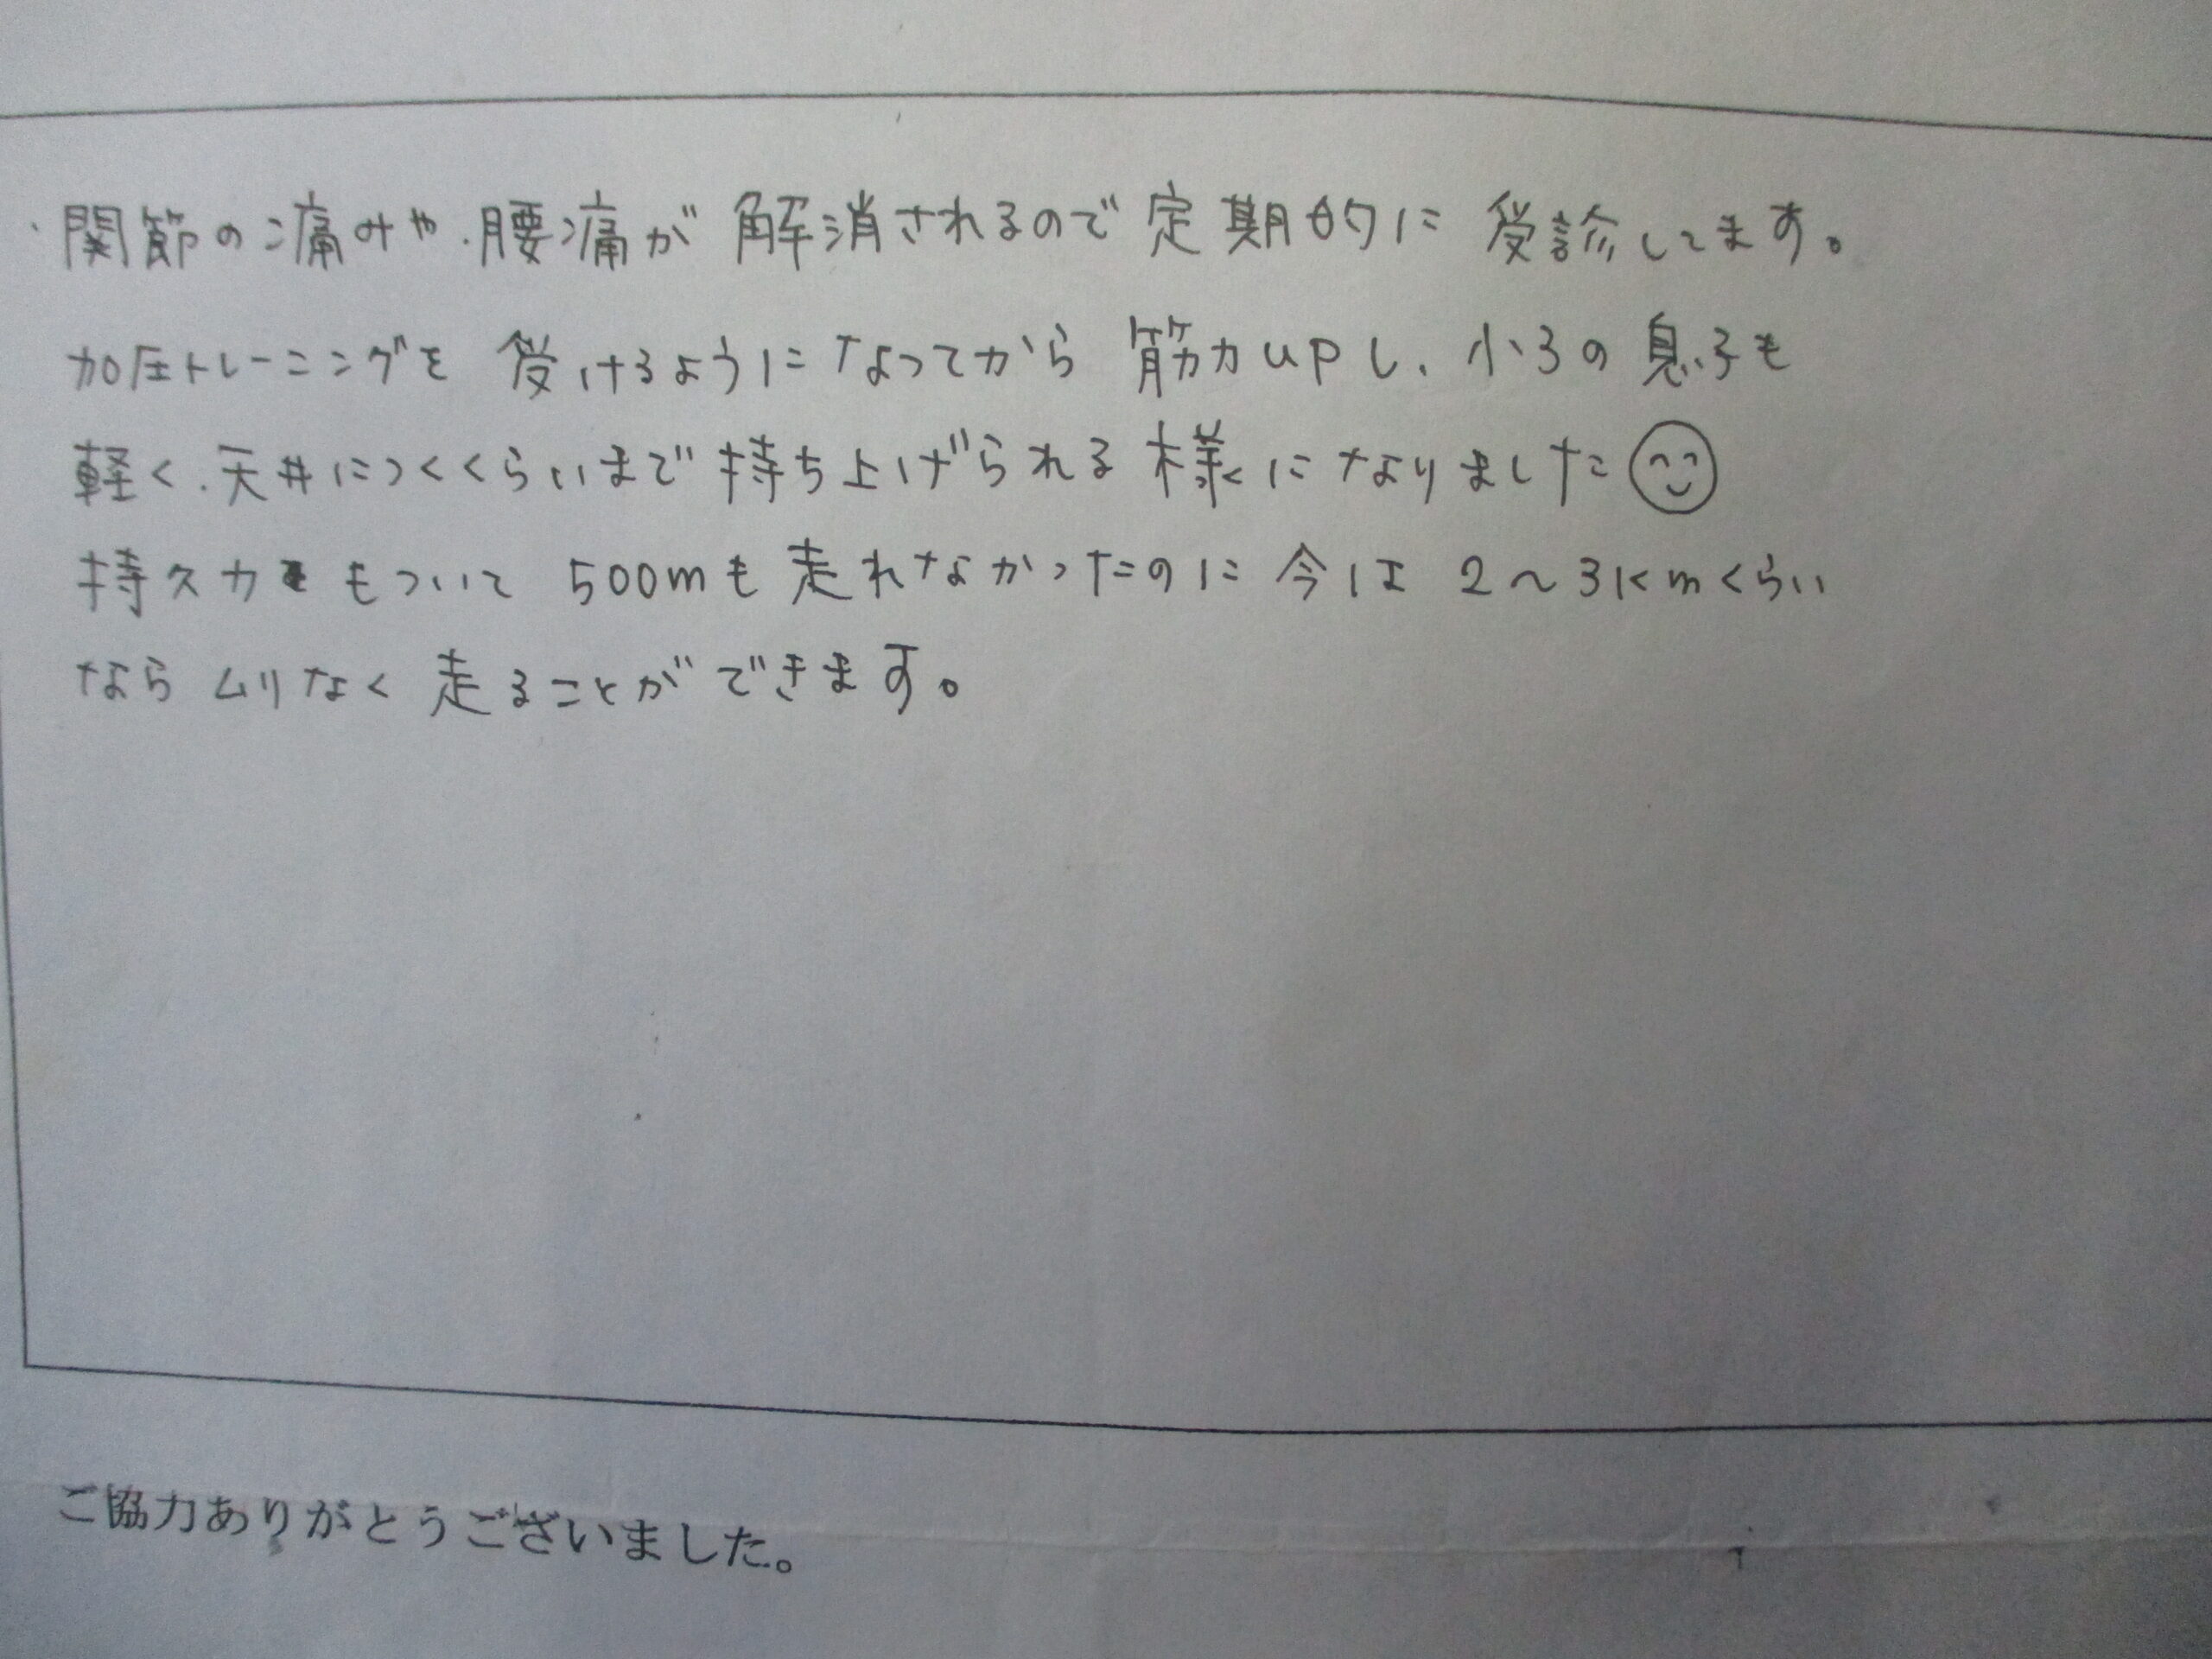 ・関節の痛みや、腰痛が解消されるので定期的に受診してます。
加圧トレーニングを受けるようになってから筋力upし、小3の息子も
軽く、天井につくくらいまで持ち上げられる様になりました
持久力もついて500mも走れなかったのに今は2〜3kmくらい
ならムリなく走ることができます。
ご協力ありがとうございました。